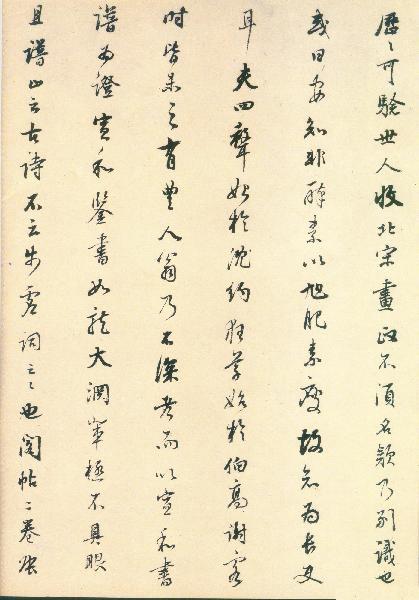 歷〻可驗世人收北宋畫政不須名款乃別識也
或曰安知非醉素以旭肥素瘦故定為長史
耳夫四聲始於沈約狂草始於伯高謝客
時皆未之有豐人翁乃不深考而以宣和書
譜為證宣和鑒書如龍大淵輩極不具眼
且譜止云古詩不云步虛詞云〻也閣帖二卷張